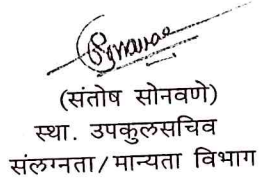 (संतोष सोनवणे)
स्था. उपकुलसचिव
संलग्नता/मान्यता विभाग